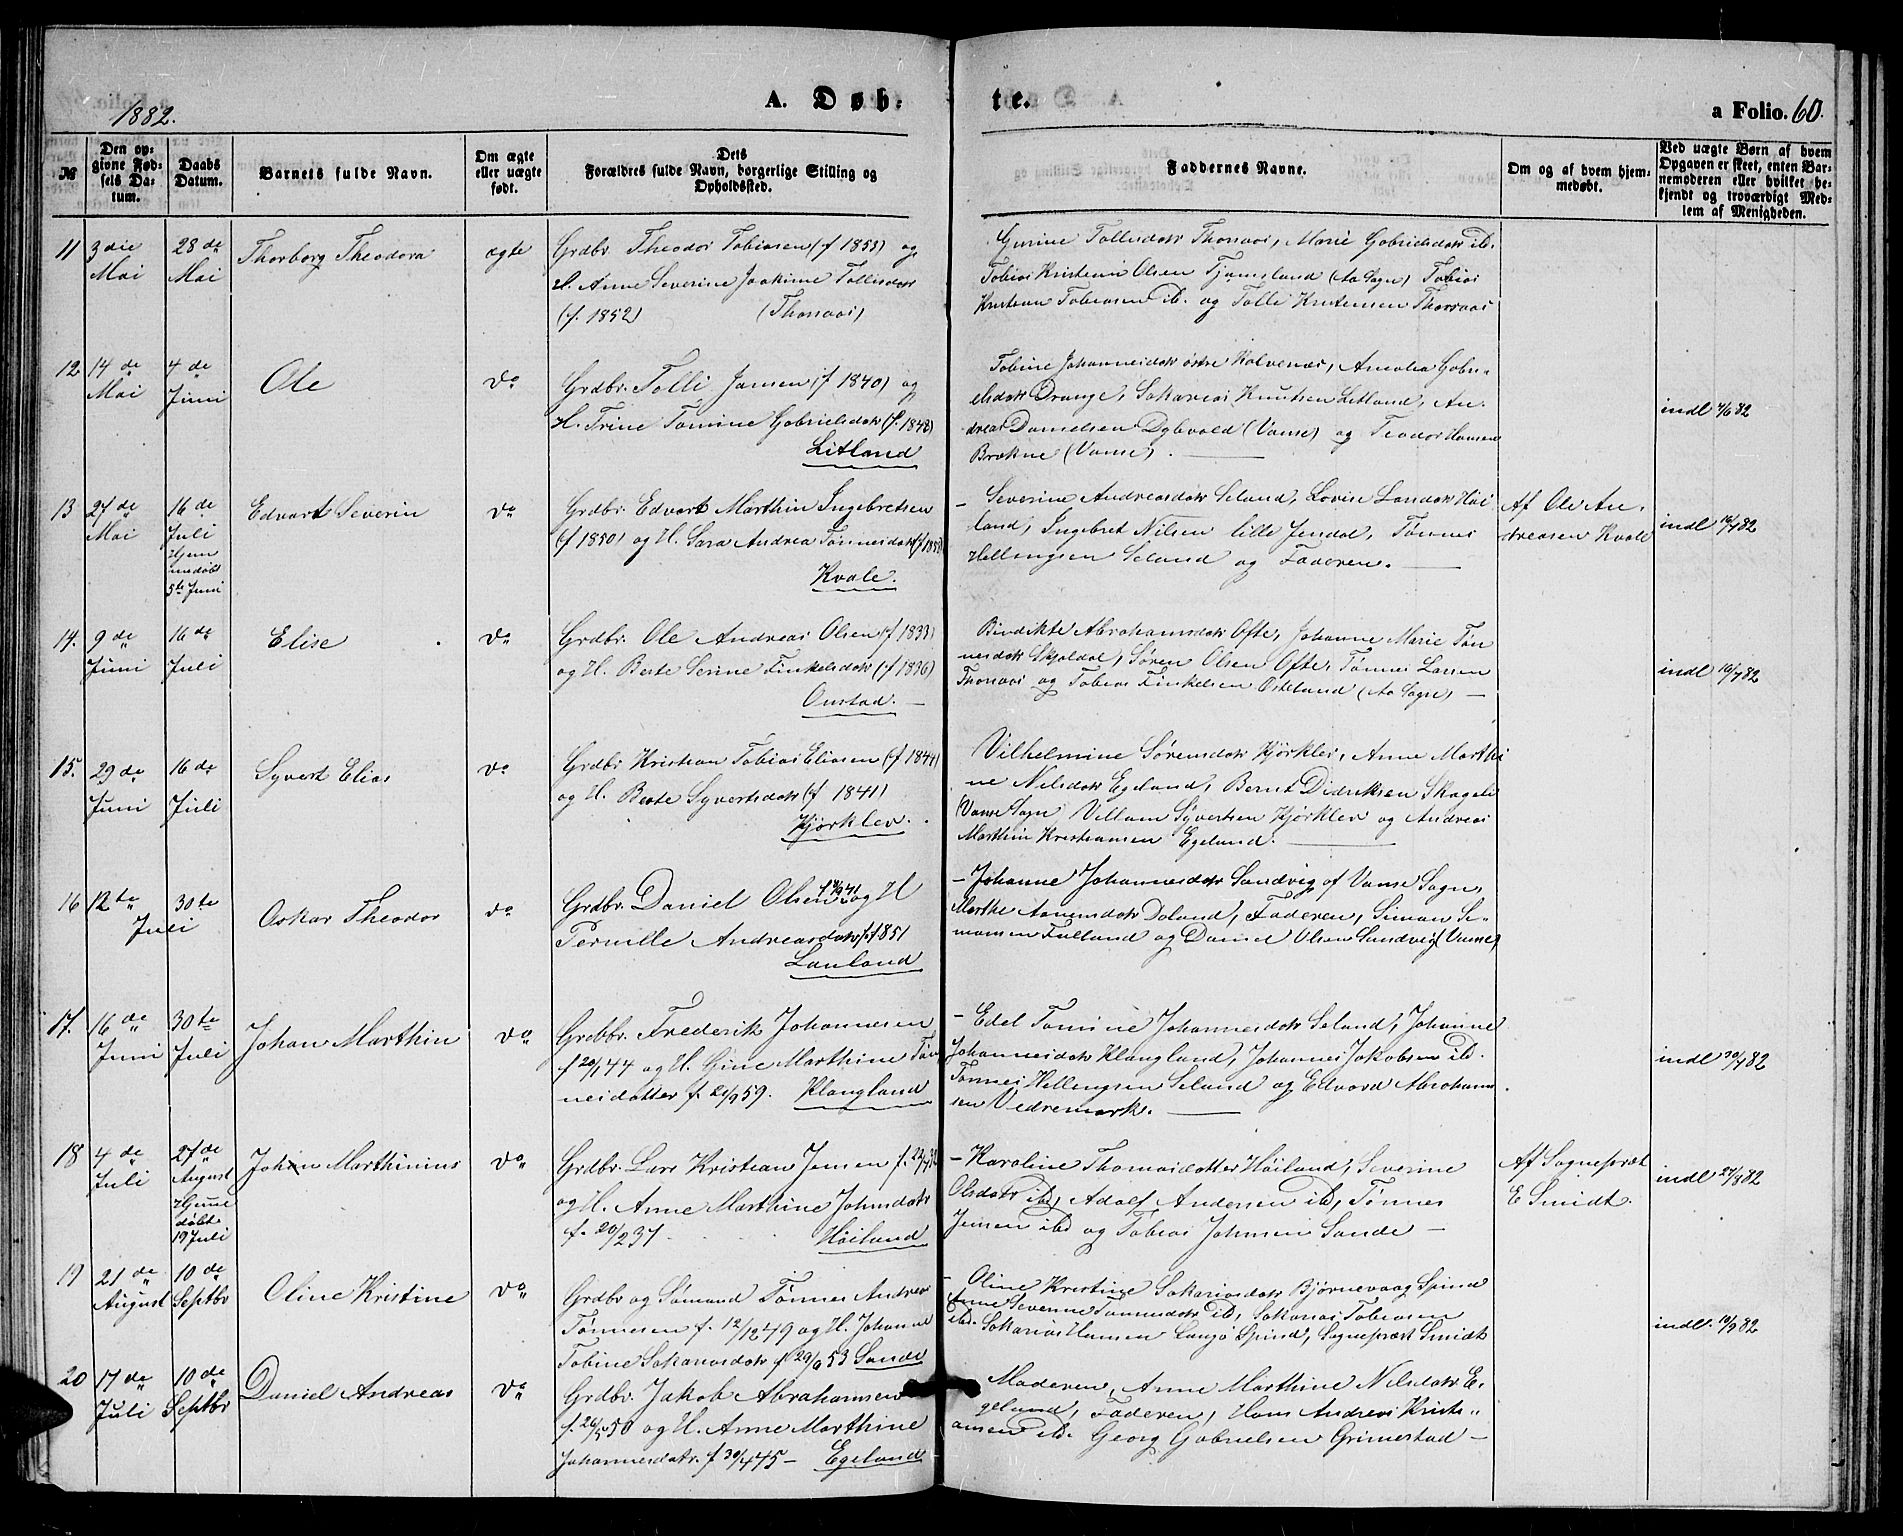 1882.
A. Døb-
te.
a Folio. 60.
№
Den op-
givne Fød-
sels Da-
tum.
Daabs
Datum.
Barnets fulde Navn.
Om ægte
eller uægte
født.
Dets
Forældres fulde Navn, borgerlige Stilling og
Opholdssted.
Faddernes Navne.
Om og af hvem hjem-
medøbt.
Ved uægte Børn af hvem
Opgaven er skeet, enten Bar-
nemoderen eller hvilket be-
kjendt og troværdigt Med-
lem af Menigheden.
11 3die Mai
28de Mai
Thorborg Theodora
ægte
Grdbr. Theodor Tobiasen (f 1853) og
H. Anne Severine Joakime Tollisdatr
(f. 1852) (Thorsaas)
Gurine Tollisdatr Thorsaas, Marie Gabrielsdatr ib.
Tobias Kristian Olsen Tjomsland (Aa Sogn) Tobias
Kristian Tobiasen ib. og Tolli Kristensen Thorsaas
12 14de Mai
4de Juni
Ole
do
Grdbr. Tolli Jansen (f 1840) og
H. Trine Tomine Gabrielsdatr (f. 1842)
Litland
Tobine Johannesdatr østre Kalvenes, Amalia Gabri-
elsdatr Drange, Sakarias Knutsen Litland, An-
dreas Danielsen Dybvold (Vanse) og Teodor Hansen
Brækne (Vanse).
indl 4/6 82
13 27de Mai
16de
Juli
Hjem
medøbt
5te Juni
Edvart Severin
do
Grdbr. Edvart Marthin Ingebretsen
(f 1850) og H. Sara Andrea Tønnesdatr (f 1852)
Kvale.
Severine Andreasdatr Seland, Lovise Larsdatr Høi
land, Ingebret Nilsen lille Jendal, Tønnes
Hellingsen Seland og Faderen.
Af Ole An-
dreasen Kvale
indl 16/7 82
14. 9de Juni
16de Juli
Elise
do
Grdbr. Ole Andreas Olsen (f 1833)
og H. Berte Serine Finkelsdatr (f 1836)
Onstad.
Bindikte Abrahamsdatr Ofte, Johanne Marie Tøn
nesdatr Skjoldal, Søren Olsen Ofte, Tønnes Larsen
Thorsaas og Tobias Finkelsen Osteland (Aa Sogn)
indl 16/7 82
15. 29de Juni
16de Juli
Syvert Elias
do
Grdbr Kristian Tobias Eliasen (f 1844)
og H. Berte Syvertsdatr (f 1841)
Kjørklev.
Vilhelmine Sørensdatr Kjørklev, Anne Marthi
ne Nilsdatr Egeland, Bernt Didriksen Skageli
(Vanse Sogn Villum Syvertsen Kjørklev og Andreas
Marthin Kristiansen Egeland.
16 12te Juli
30te
Oskar Theodor
do
Grdbr. Daniel Olsen og H
Pernille Andreasdatr f. 1851
Lauland
Johanne Johannesdatr Sandvig af Vanse Sogn,
Marthe Aanensdatr Doland, Faderen, Simon Si-
monsen Fulland og Daniel Olsen Sandvig (Vanse)
17. 16de Juni
30te Juli
Johan Marthin
do
Grdbr. Frederik Johannesen
f 20/1 44 og H. Gine Marthine Tøn
nesdatter f. 21/9 59. Klangland
Edel Tomine Johannesdatr Seland, Johanne
Johannesdatr Klangland, Johannes Jakobsen ib.
Tønnes Hellingsen Seland og Edvard Abraham
sen Vedremark.
indl 30/7 82
18 4de Juli
27de
August
Hjem
døbt
19 Juli
Johan Marthinius
do
Grdbr. Lars Kristian Jensen f.
og H. Anne Marthine Johnsdatr
f. 20/2 37 Høiland
Karoline Thomasdatter Høiland, Severine
Olsdatr ib, Adolf Andersen ib, Tønnes
Jensen ibd og Tobias Johnsen Sande
Af Sogneprest
E Smidt.
indl 27/8 82
19 21de August
10de Septbr
Oline Kristine
do
Grdbr og Sømand Tønnes Andreas
Tønnesen f. 12/12 49 og H. Johanne
Tobine Sakariasdatr f 29/9 53 Sande
Oline Kristine Sakariasdatr Bjørnevaag Spind
Anne Severine Tønnesdatr ib, Sakarias Tobiasen
ibd. Sakarias Hansen Langø Spind, Sogneprest Smidt
indl. 10/9 82
20 17de Juli
10de Septbr
Daniel Andreas
do
Grdbr. Jakob Abrahamsen
f. 26/5 50 og H. Anne Marthine
Johannesdatr. f 30/4 45 Egeland
Moderen, Anne Marthine Nilsdatr E-
geland, Faderen, Hans Andreas Kristi-
ansen ib. Georg Gabrielsen Grimestad